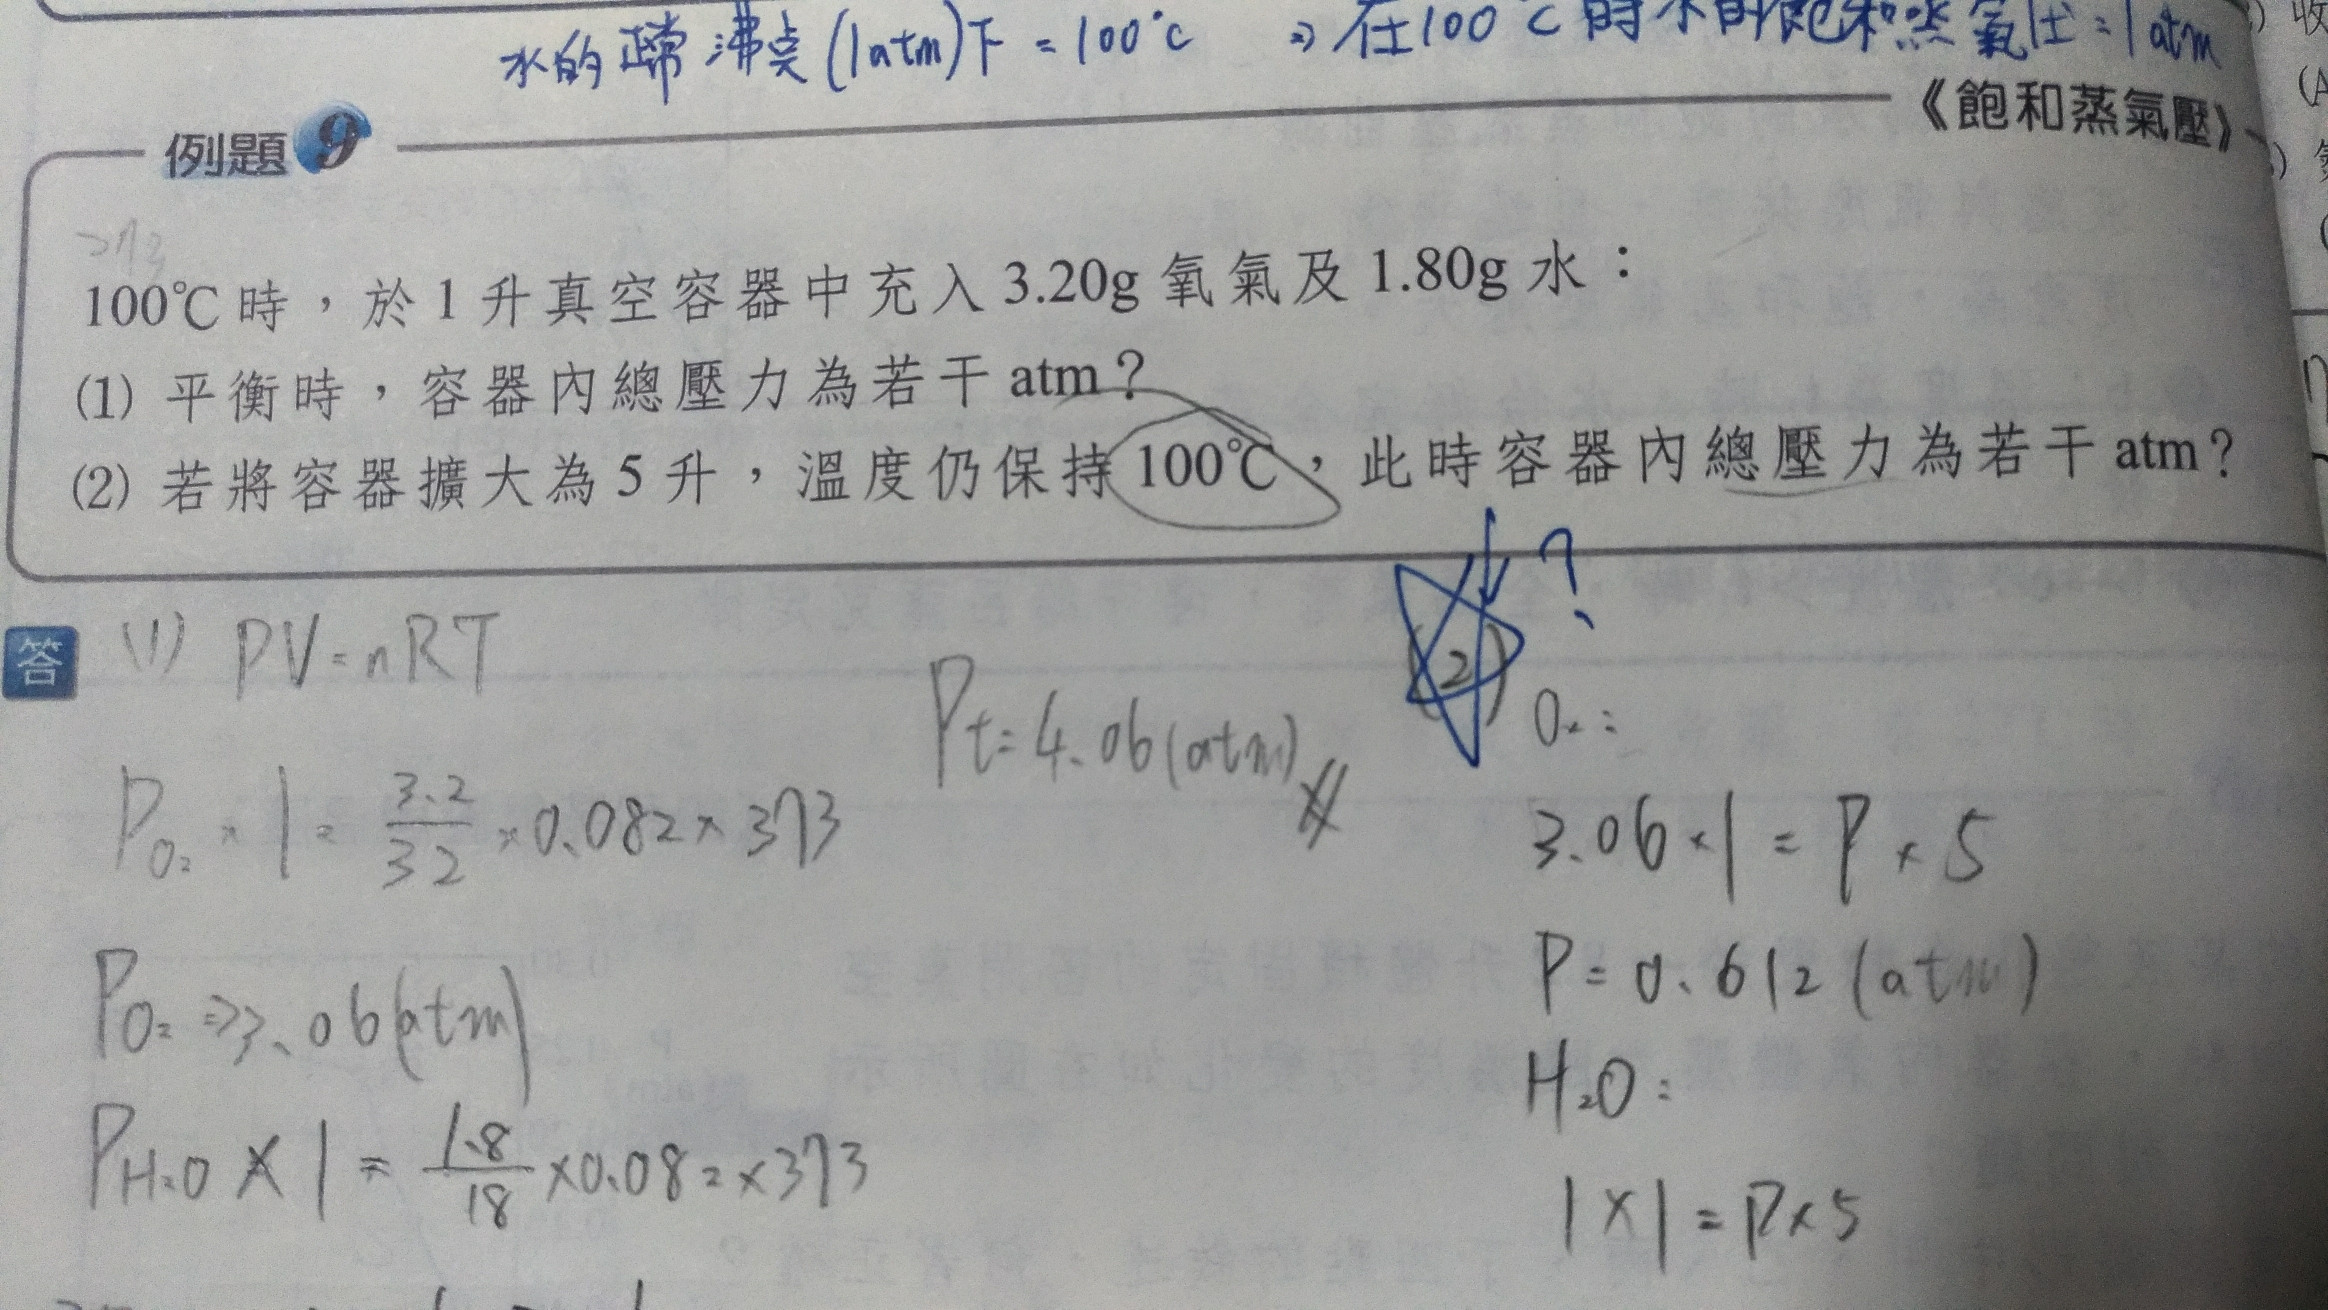 水的正常沸点(1atm)下 = 100℃ ⇒ 在100℃時水的飽和蒸氣压 = 1atm
例題9
《飽和蒸氣壓》
273
100℃時,於1升真空容器中充入3.20g氧氣及1.80g水:
(1) 平衡時,容器內總壓力為若干atm?
(2) 若將容器擴大為5升,溫度仍保持100℃,此時容器內總壓力為若干atm?
?
答
(1) PV=nRT
Po₂ × 1 = 3.2/32 × 0.082 × 373
Po₂ ⇒ 3.06(atm)
PH₂O × 1 = 1.8/18 × 0.082 × 373
Pt = 4.06(atm)
(2)
O₂:
3.06 × 1 = P × 5
P = 0.612 (atm)
H₂O:
1 × 1 = P × 5
收
(A